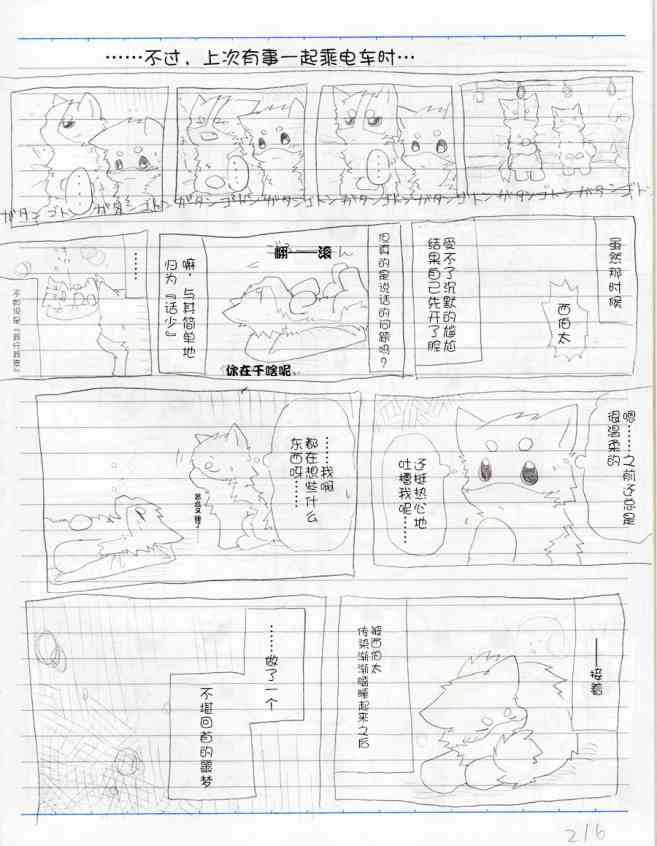 ……不过，上次有事一起乘电车时…
…
…
…
ガタンゴトンガタンゴトンガタンゴトンガタンゴトンガタンゴトンガタンゴト
虽然那时候
西伯太
受不了沉默的尴尬
结果自己先开了腔
但真的是说话的问题吗？
翻——滚
你在干啥呢
嘛，与其简单地
归为『话少』
……
嗯……之前还总是
很温柔的
还挺热心地
吐槽我呢……
……我啊
都在想些什么
东西呀……
——接着
被西伯太
传染渐渐瞌睡起来之后
……做了一个
不堪回首的噩梦
216